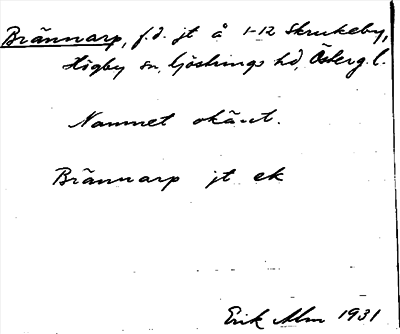 Brännarp, f.d. jt å 1-12 Skrukeby,
Högby sn, Göstrings hd, Österg.l.
Namnet okänt.
Brännarp jt ek
Erik Alm 1931